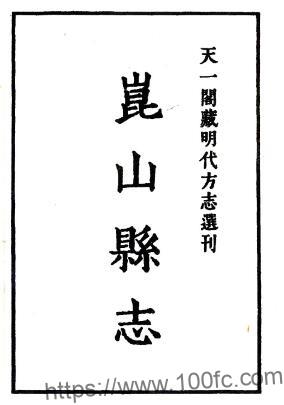 天一閣藏明代方志選刊
崑山縣志
https://www.100fc.com